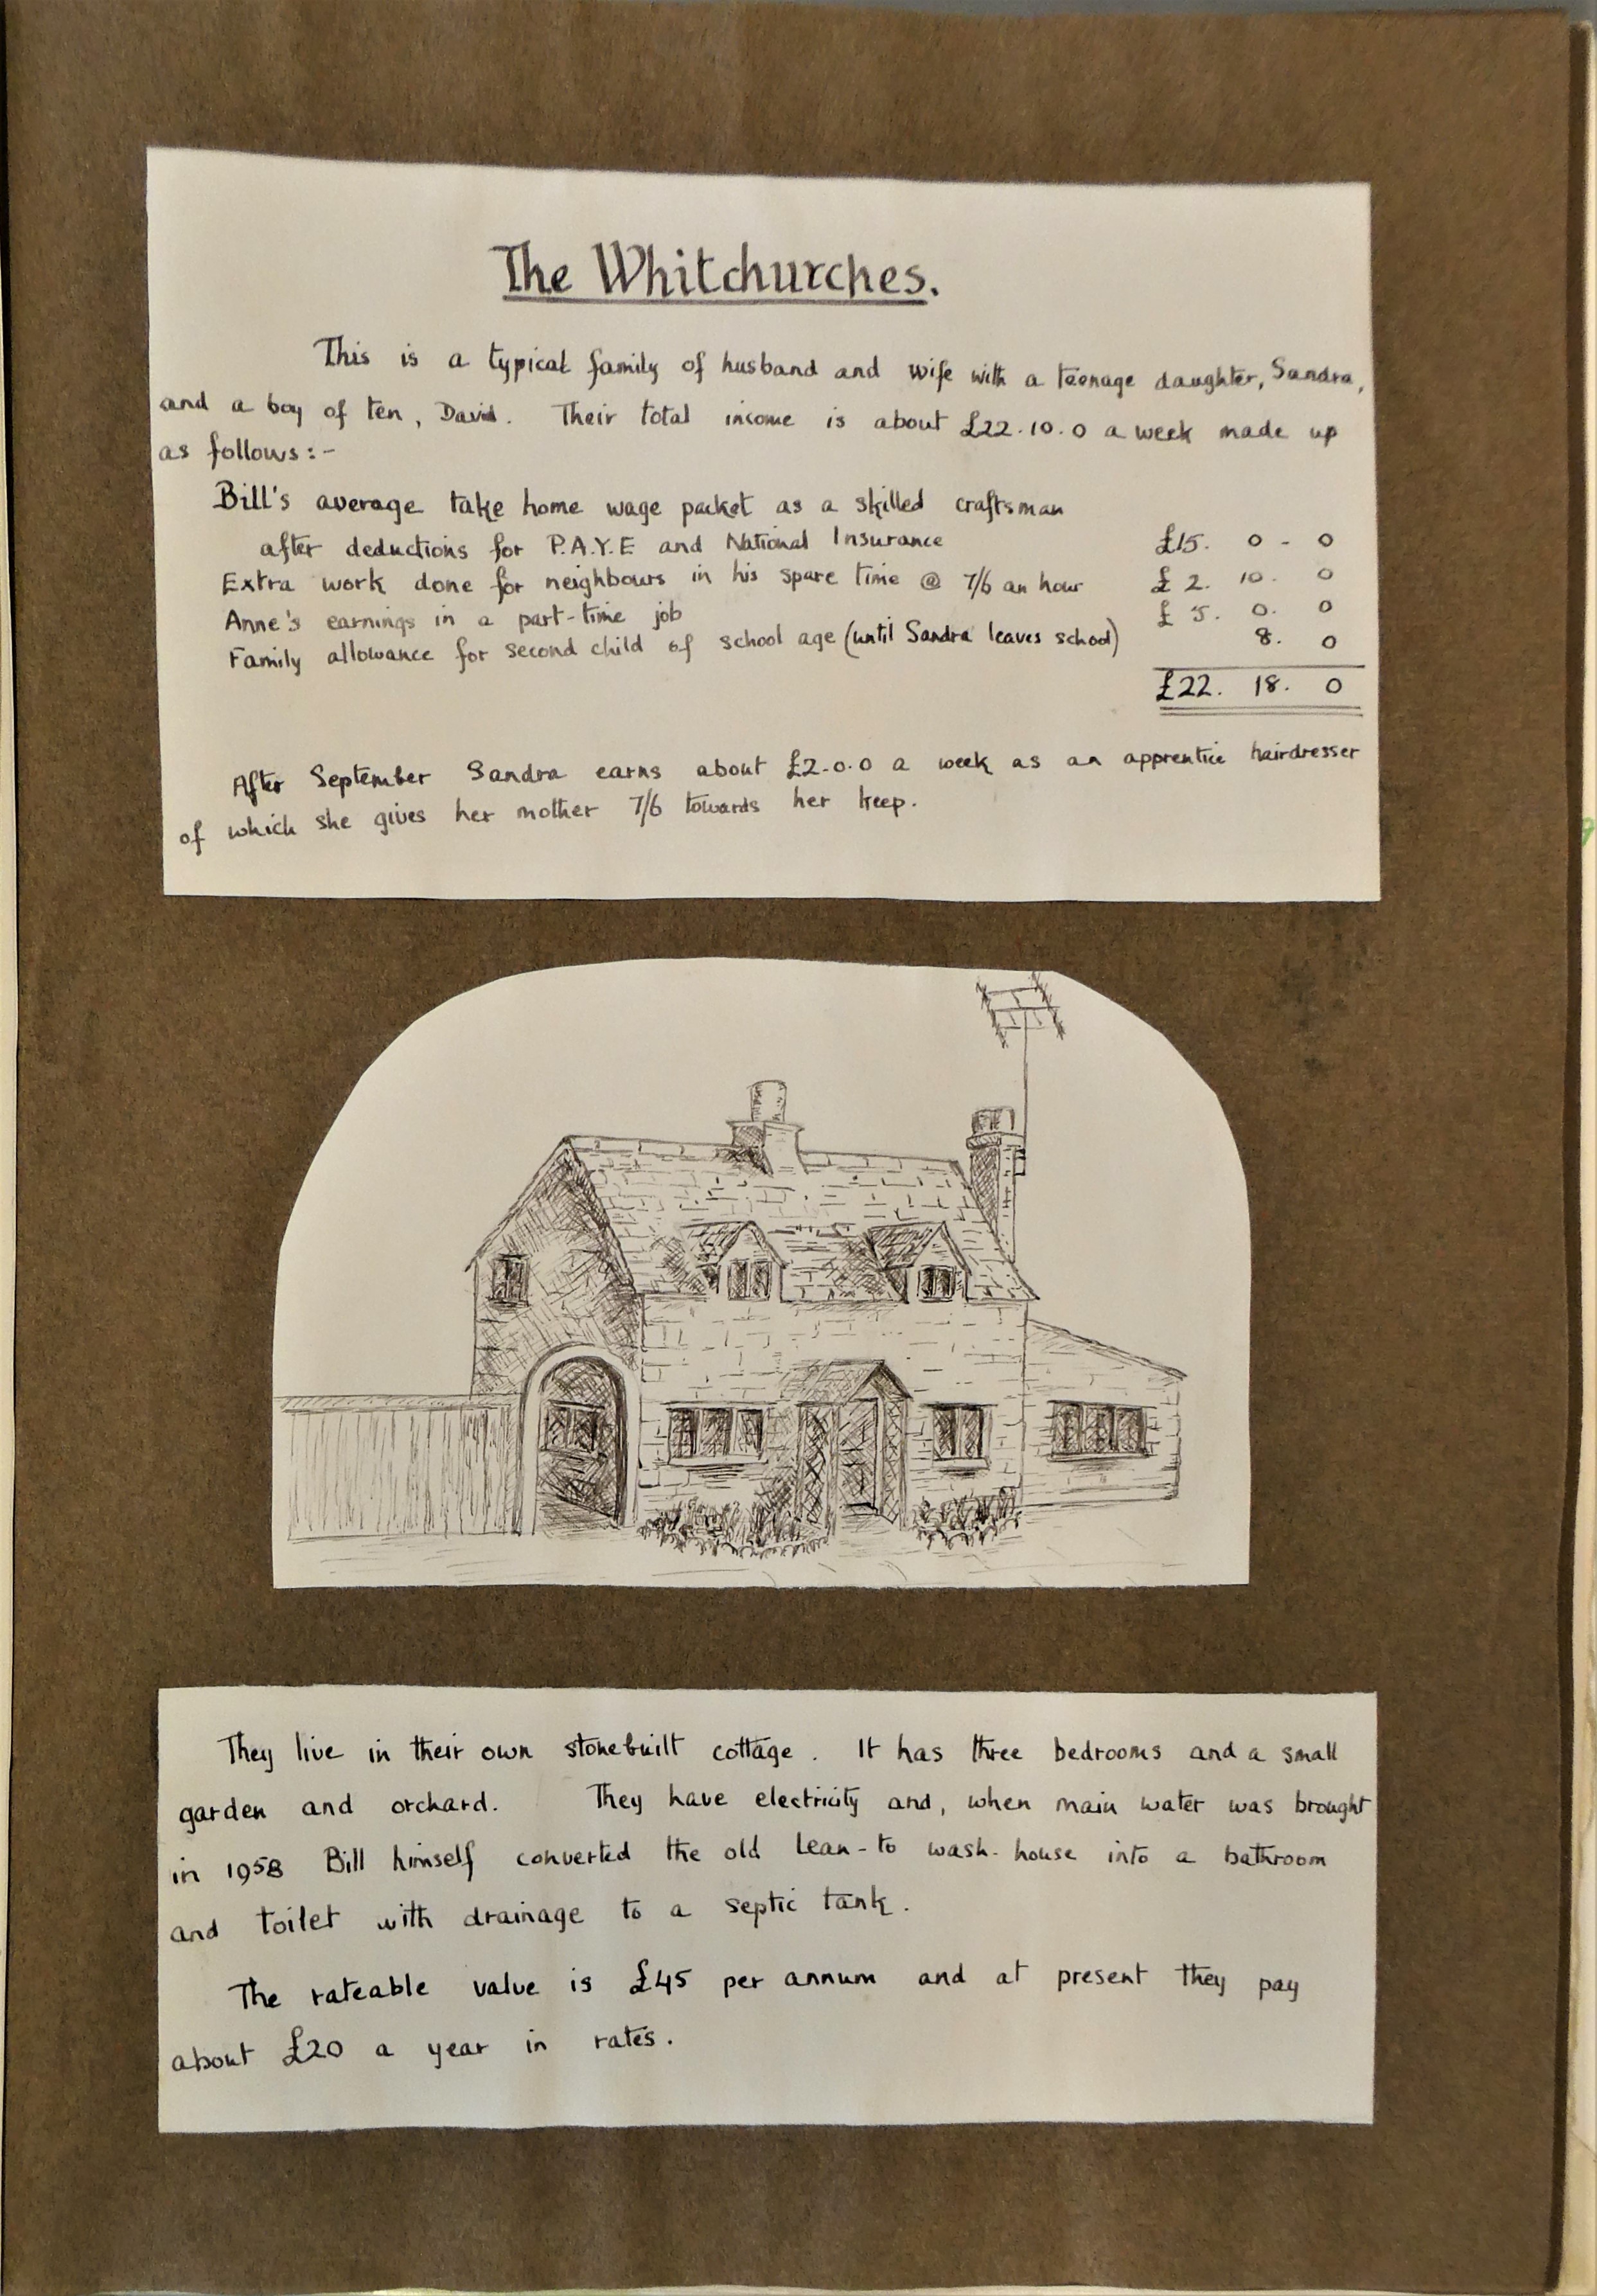 The Whitchurches.
This is a typical family of husband and wife with a teenage daughter, Sandra,
and a boy of ten, David. Their total income is about £22.10.0 a week made up
as follows:-
Bill's average take home wage packet as a skilled craftsman
after deductions for P.A.Y.E and National Insurance £15. 0 - 0
Extra work done for neighbours in his spare time @ 7/6 an hour £ 2. 10. 0
Anne's earnings in a part-time job £ 5. 0. 0
Family allowance for second child of school age (until Sandra leaves school) 8. 0
£22. 18. 0
After September Sandra earns about £2.0.0 a week as an apprentice hairdresser
of which she gives her mother 7/6 towards her keep.
They live in their own stonebuilt cottage. It has three bedrooms and a small
garden and orchard. They have electricity and, when main water was brought
in 1958 Bill himself converted the old lean-to wash-house into a bathroom
and toilet with drainage to a septic tank.
The rateable value is £45 per annum and at present they pay
about £20 a year in rates.